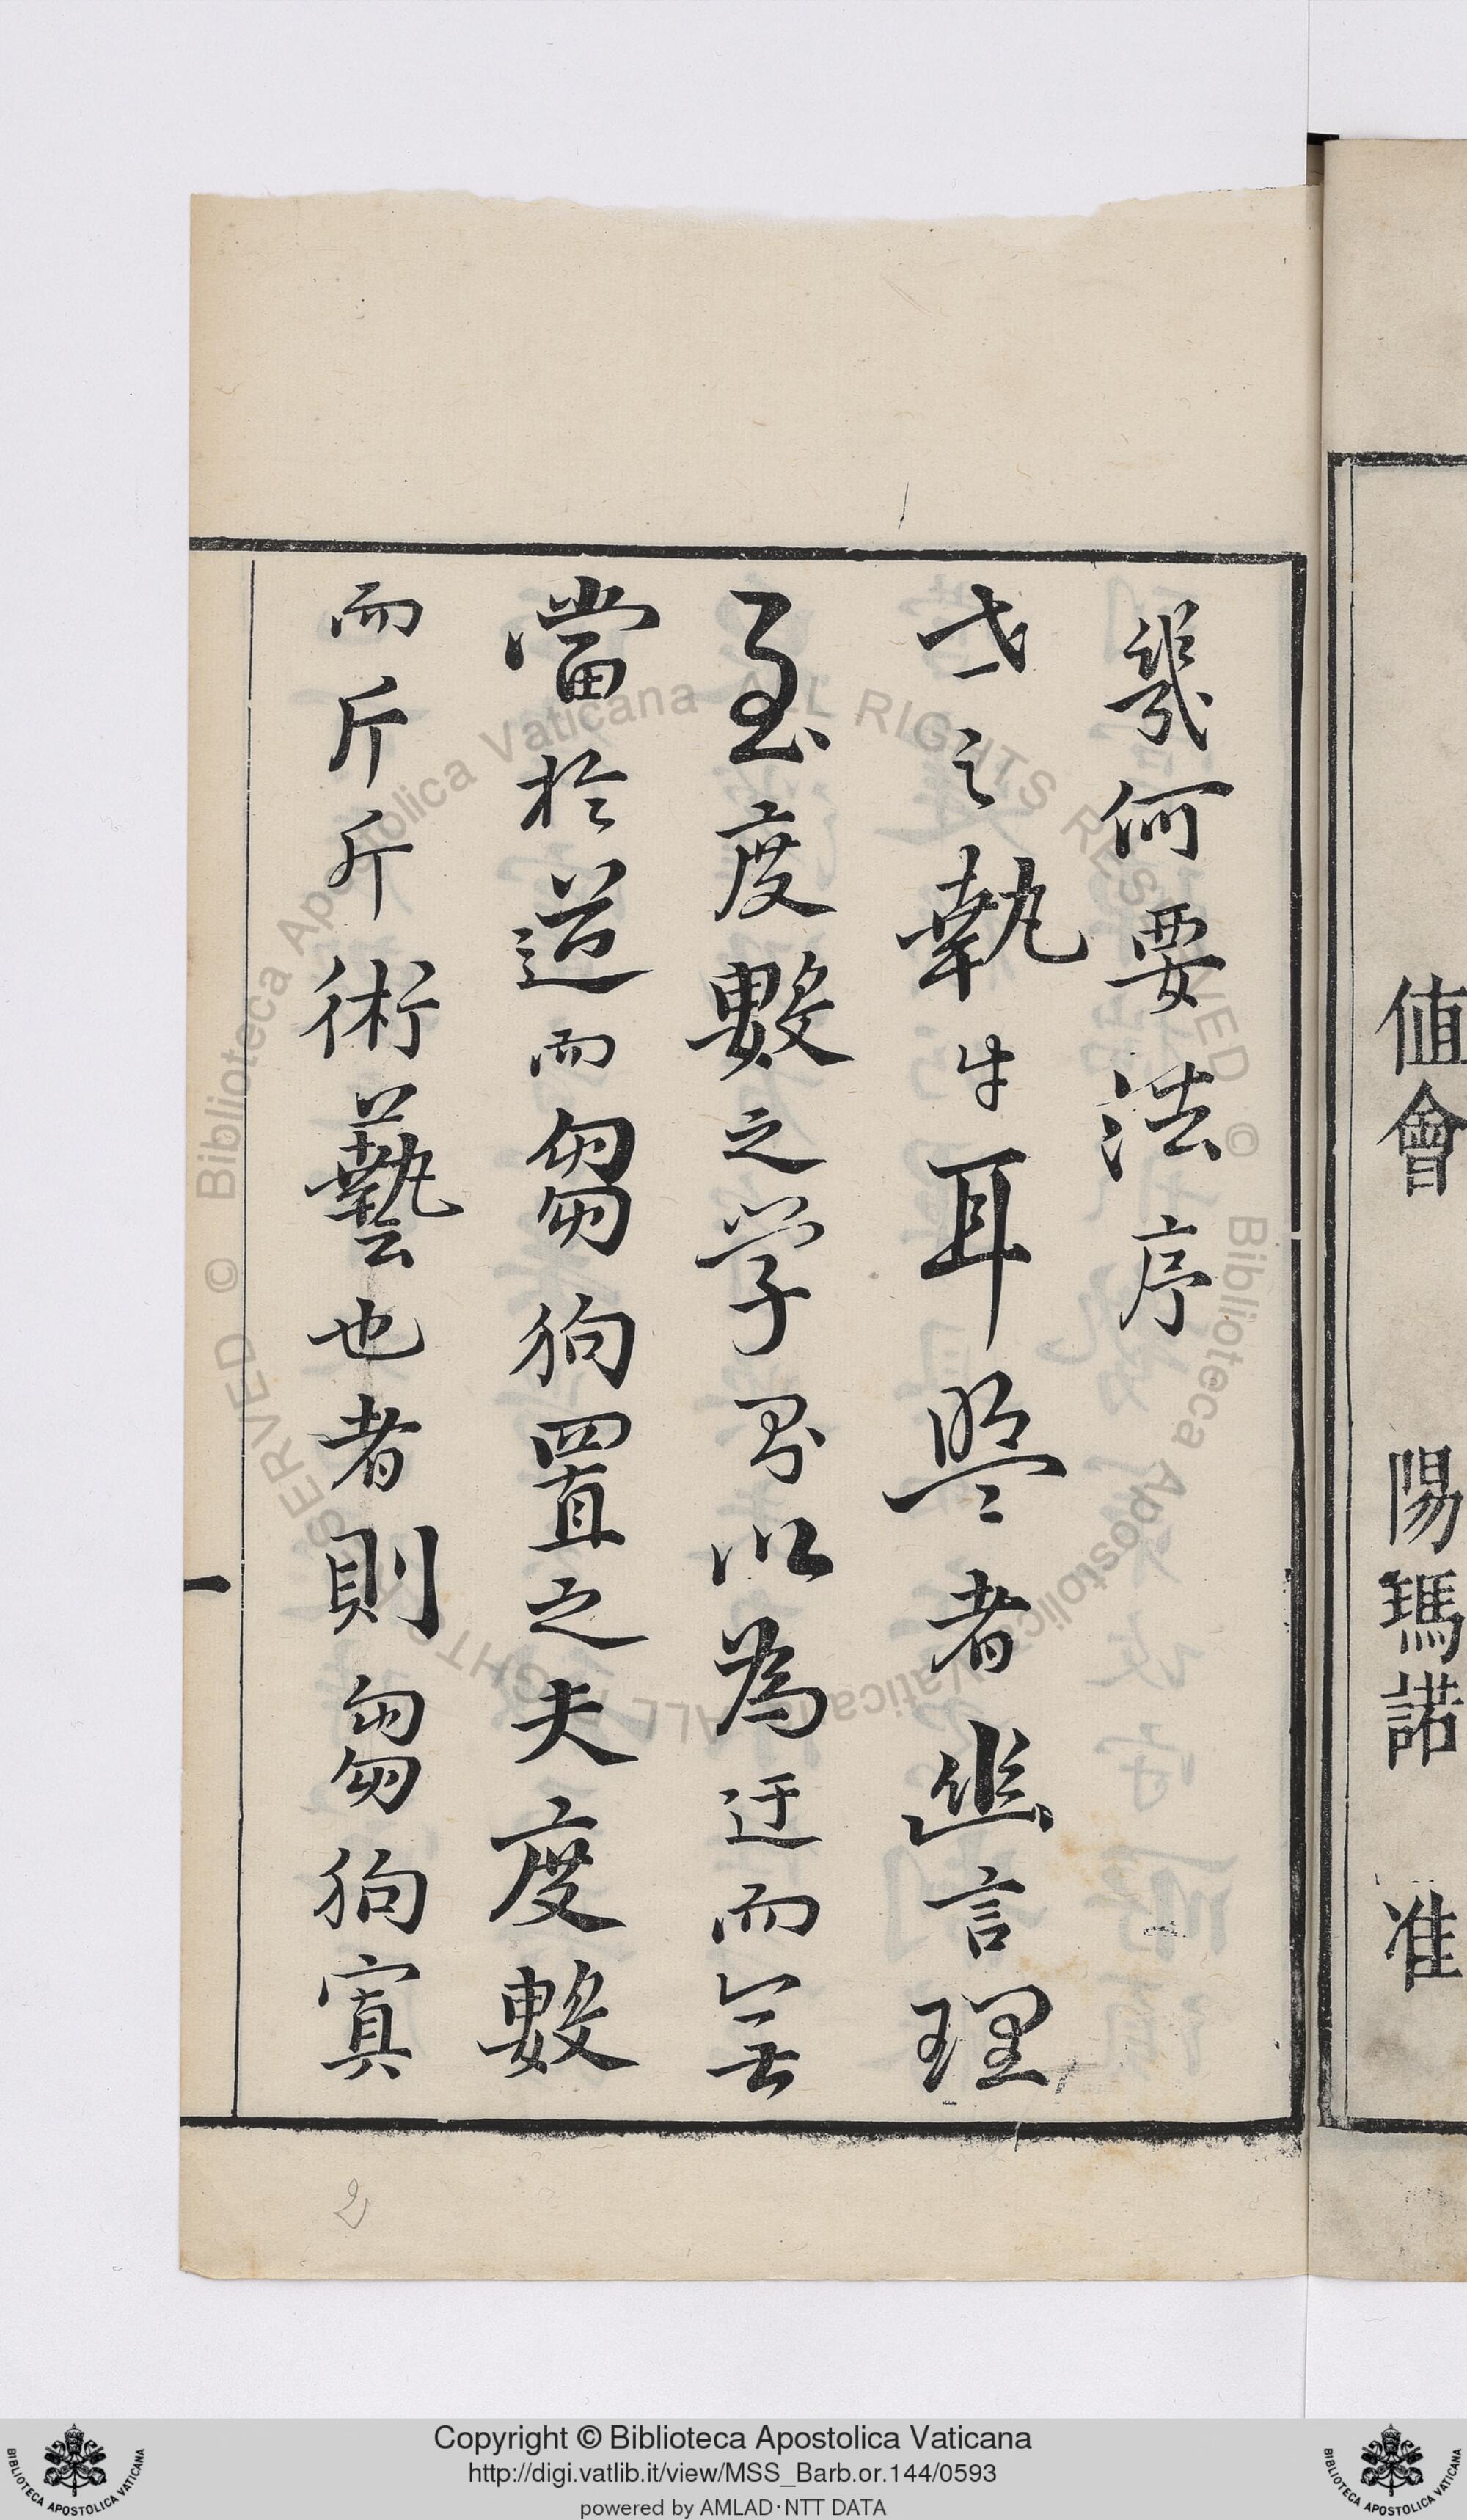 值會 陽瑪諾 准
幾何要法序
世之執牛耳壂者豈言理
至度數之学畧以為迂而無
當於道而芻狗置之夫度數
而斤斤術藝也者則芻狗寘
一
2
Copyright © Biblioteca Apostolica Vaticana
http://digi.vatlib.it/view/MSS_Barb.or.144/0593
powered by AMLAD·NTT DATA
© Biblioteca Apostolica Vaticana ALL RIGHTS RESERVED
© Biblioteca Apostolica Vaticana ALL RIGHTS RESERVED
BIBLIOTECA APOSTOLICA VATICANA
BIBLIOTECA APOSTOLICA VATICANA